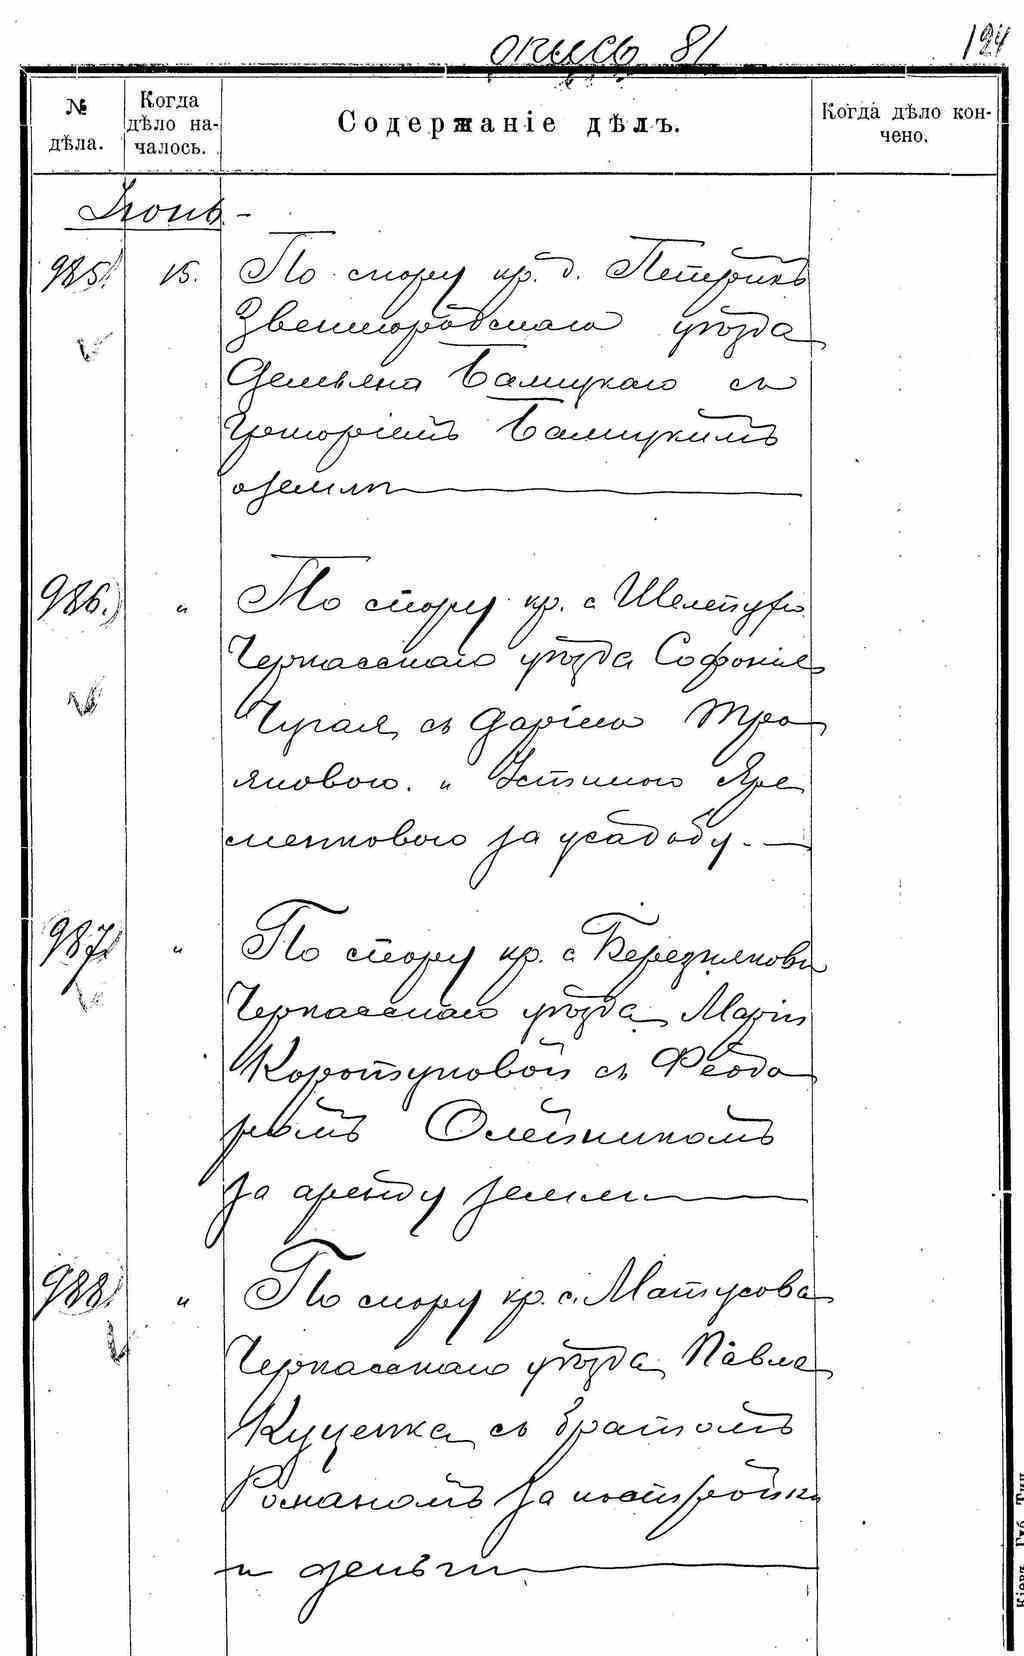 опись 81
124
№ дѣла.
Когда дѣло на-
чалось.
Содержаніе дѣлъ.
Когда дѣло кон-
чено.
Іюнь
985. 15. По спору кр. д. Петрикъ
Звенигородскаго уѣзда
Демьяна Балицкаго съ
Григоріемъ Балицкимъ
о землѣ
986. " По спору кр. с. Шелепухъ
Черкасскаго уѣзда Софонія
Чугая съ Даріею Тро
яновою и Устиною Яре
менковою за усадьбу.
987. " По спору кр. с. Березняковъ
Черкасскаго уѣзда Маріи
Коротуновой съ Феодо
ромъ Олейникомъ
за аренду земли
988. " По спору кр. с. Матусова
Черкасскаго уѣзда Павла
Куценка съ братомъ
Романомъ за постройки
и деньги
Кіевъ. Губ. Тип.